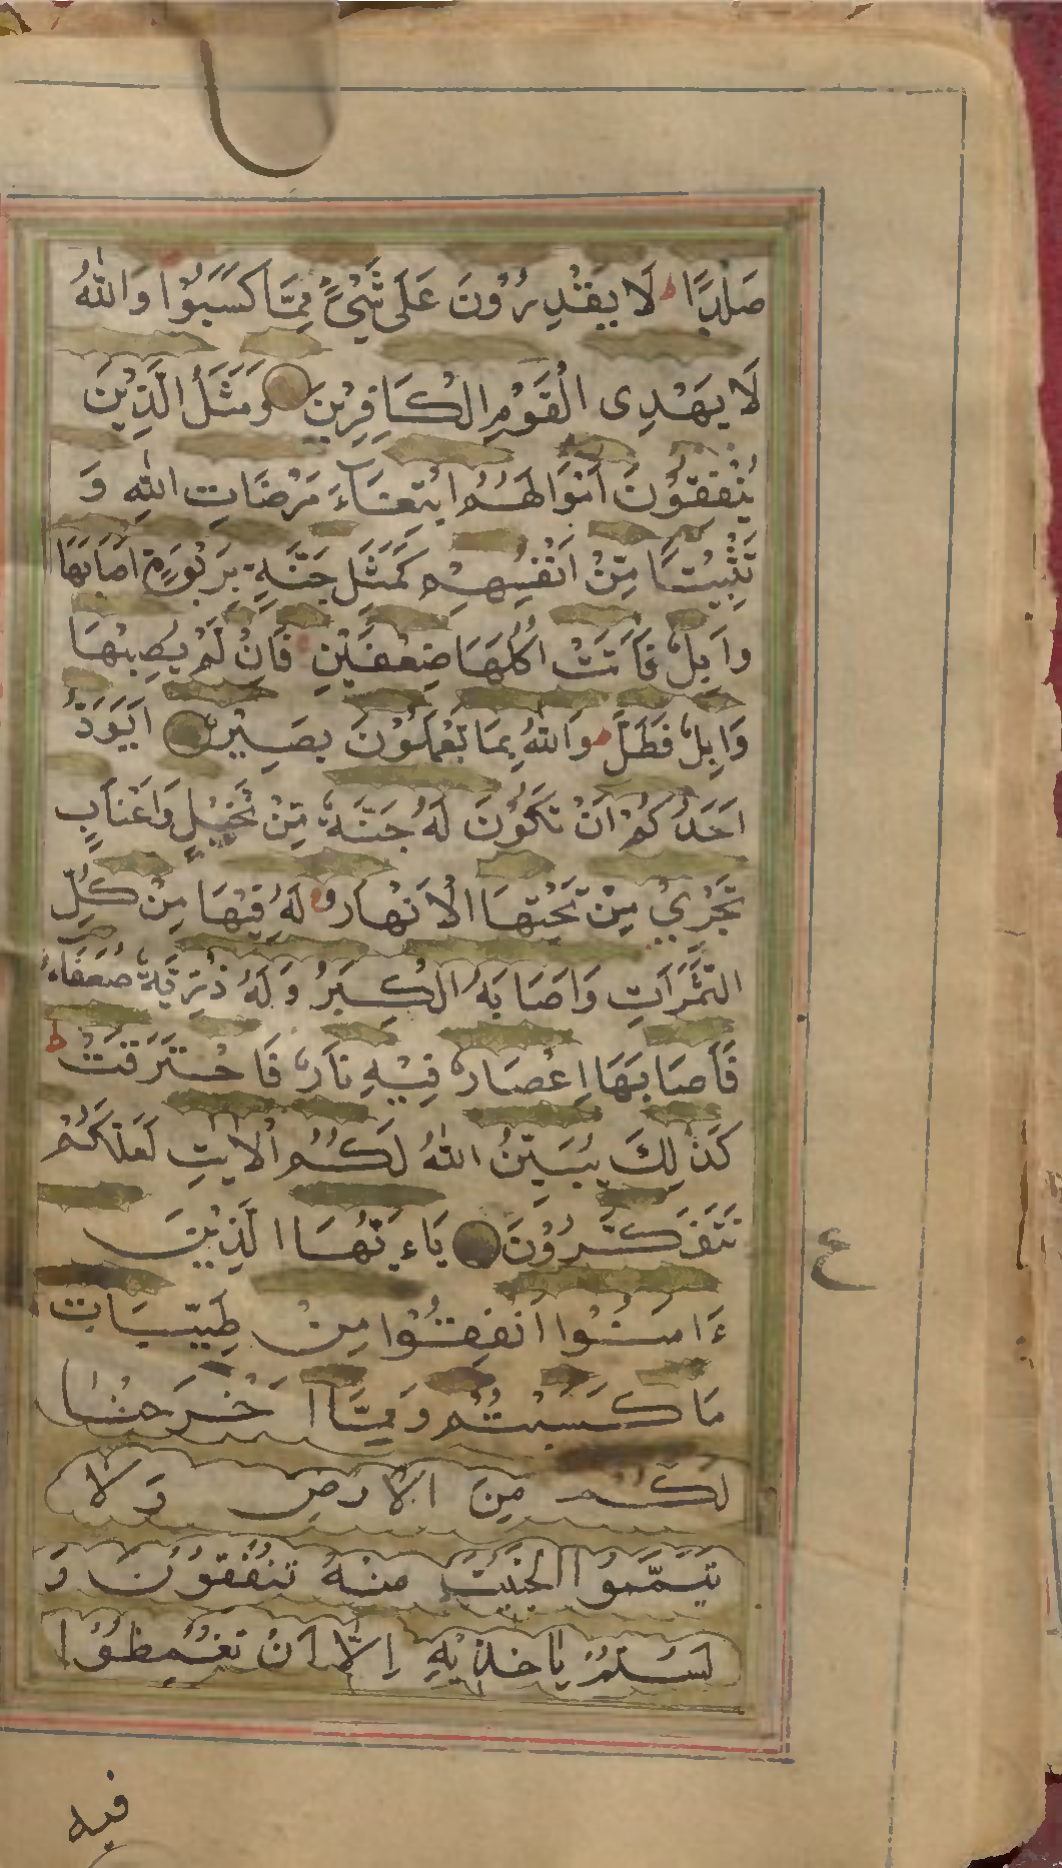 صَلْدًا ط لَا يَقْدِرُوْنَ عَلٰى شَيْءٍ مِّمَّا كَسَبُوْا وَاللّٰهُ
لَا يَهْدِى الْقَوْمِ الْكَافِرِيْنَ وَمَثَلُ الَّذِيْنَ
يُنْفِقُوْنَ اَمْوَالَهُمُ ابْتِغَاءَ مَرْضَاتِ اللّٰهِ وَ
تَثْبِيْتًا مِّنْ اَنْفُسِهِمْ كَمَثَلِ جَنَّةٍ بِرَبْوَةٍ اَصَابَهَا
وَابِلٌ فَاٰتَتْ اُكُلَهَا ضِعْفَيْنِ فَاِنْ لَمْ يُصِبْهَا
وَابِلٌ فَطَلٌّ وَاللّٰهُ بِمَا تَعْمَلُوْنَ بَصِيْرٌ اَيَوَدُّ
اَحَدُكُمْ اَنْ تَكُوْنَ لَهُ جَنَّةٌ مِّنْ نَّخِيْلٍ وَاَعْنَابٍ
تَجْرِيْ مِنْ تَحْتِهَا الْاَنْهَارُ لَهُ فِيْهَا مِنْ كُلِّ
الثَّمَرَاتِ وَاَصَابَهُ الْكِبَرُ وَلَهُ ذُرِّيَّةٌ ضُعَفَاءُ
فَاَصَابَهَا اِعْصَارٌ فِيْهِ نَارٌ فَاحْتَرَقَتْ ط
كَذٰلِكَ يُبَيِّنُ اللّٰهُ لَكُمُ الْاٰيٰتِ لَعَلَّكُمْ
تَتَفَكَّرُوْنَ يَاءَيُّهَا الَّذِيْنَ
ءَامَنُوْا اَنْفِقُوْا مِنْ طَيِّبَاتِ
مَا كَسَبْتُمْ وَمِمَّا اَخْرَجْنَا
لَكُمْ مِنَ الْاَرْضِ وَلَا
تَيَمَّمُوا الْخَبِيْثَ مِنْهُ تُنْفِقُوْنَ وَ
لَسْتُمْ بِاٰخِذِيْهِ اِلَّا اَنْ تُغْمِظُوْا
ع
فيه